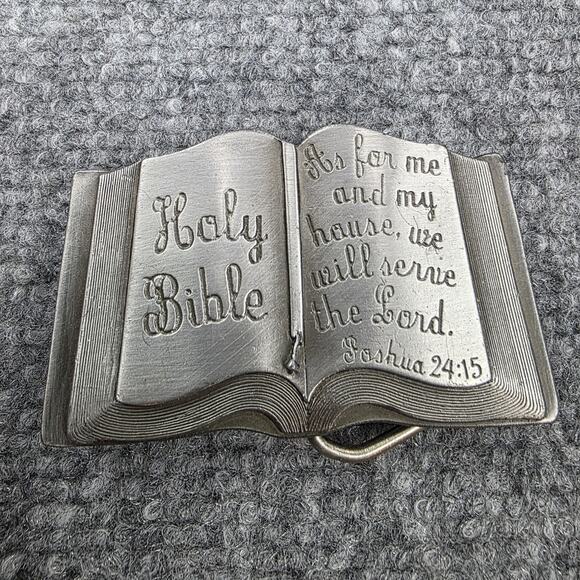 Holy
Bible
As for me
and my
house, we
will serve
the Lord.
Joshua 24:15